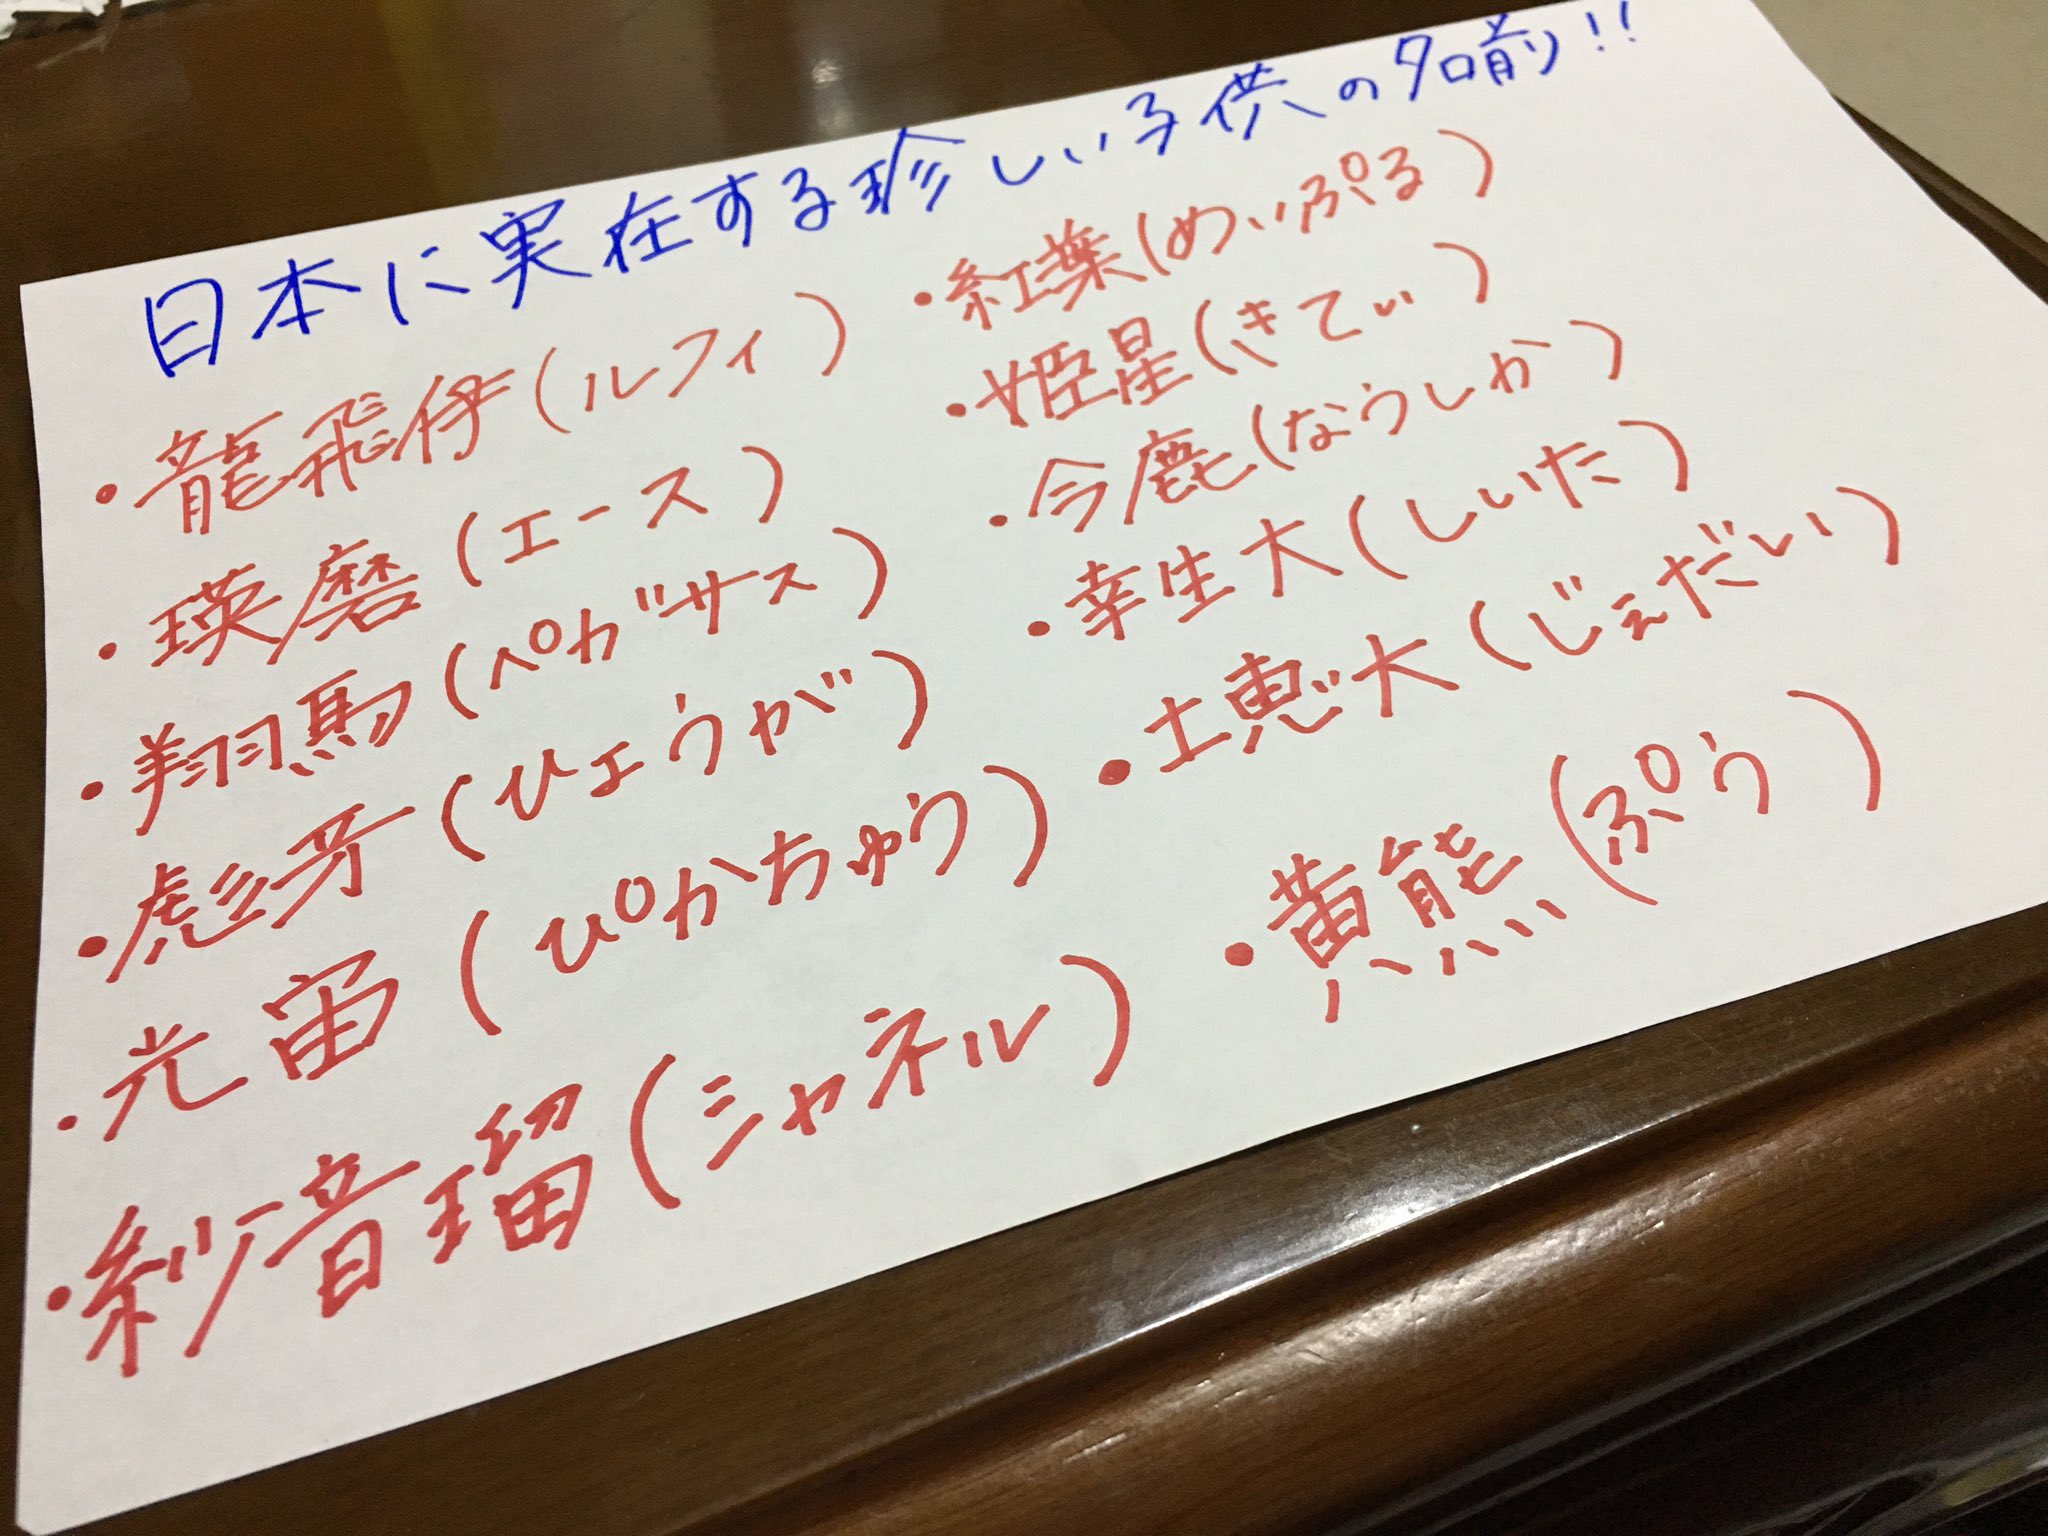 日本に実在する珍しい子供の名前!!
・龍飛伊(ルフィ)
・瑛磨(エース)
・翔馬(ペガサス)
・彪牙(ひょうが)
・光宙(ぴかちゅう)
・紗音瑠(シャネル)
・紅葉(めいぷる)
・姫星(きてぃ)
・今鹿(なうしか)
・幸生大(しいた)
・士恵大(じぇだい)
・黄熊(ぷう)